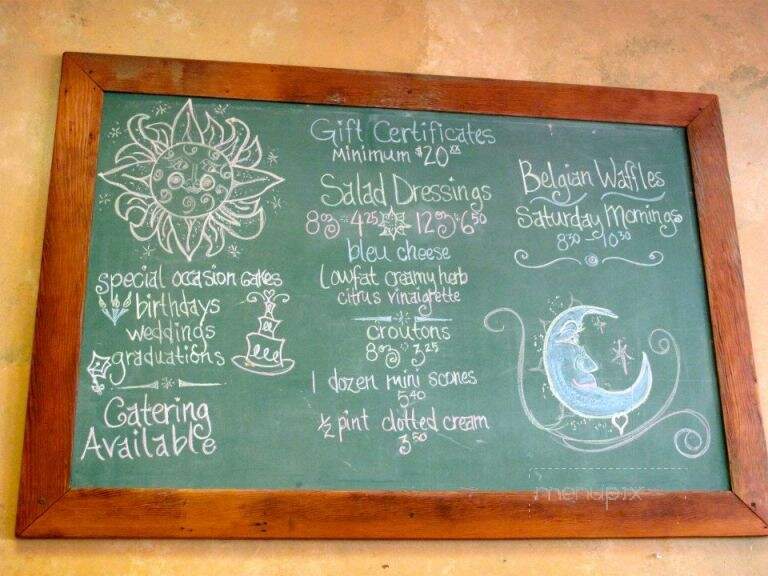 special occasion cakes
birthdays
weddings
graduations
Catering
Available
Gift Certificates
Minimum $20xx
Salad Dressings
8oz 4.25 12oz 6.50
bleu cheese
Lowfat creamy herb
citrus vinaigrette
croutons
8oz 3.25
1 dozen mini scones
5.40
½ pint clotted cream
3.50
Belgian Waffles
Saturday Mornings
8:30 - 10:30
menupix